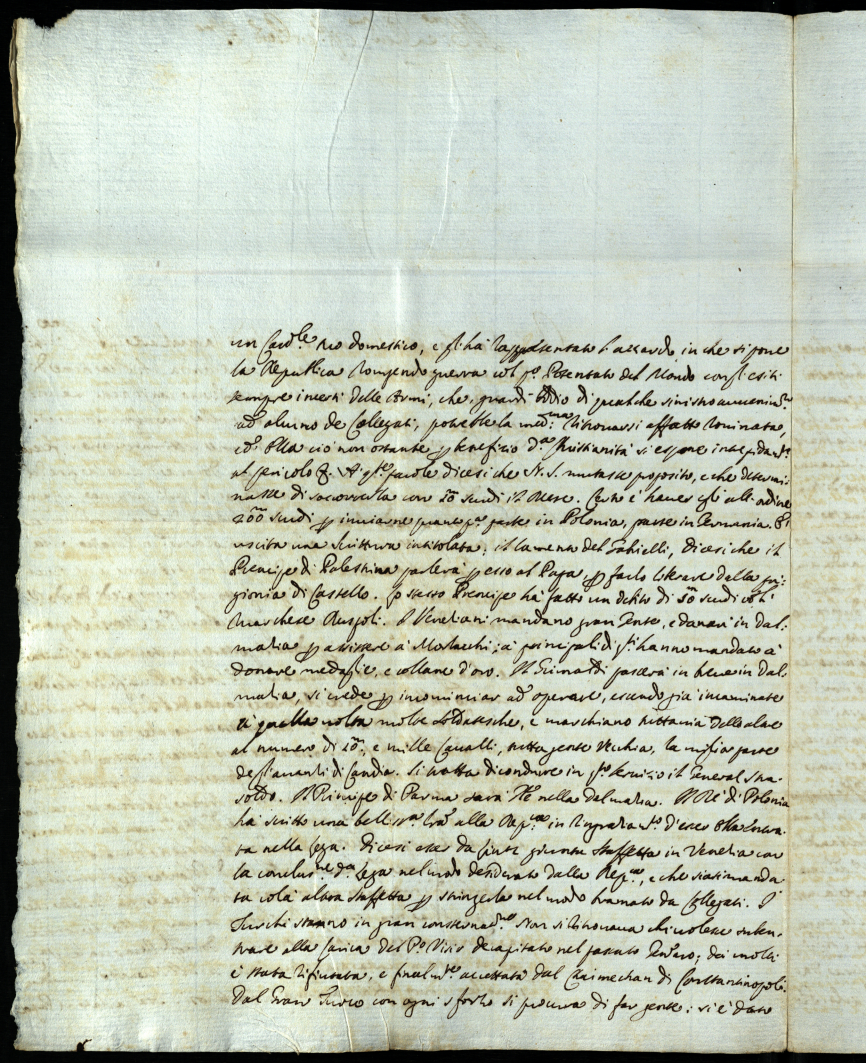 un Card.le suo domestico, e gl'hà rappresentato l'azzardo, in che si pone
la Republica rompendo guerra col p.o Potentato del Mondo con gl'esiti
sempre incerti delle Armi, che, guardi Iddio di qualche sinistro
ad alcuno de Collegati, potrebbe la med.ma ritrovarsi affatto rominata,
ed Ella ciò non ostante p benefizio d.a Christianità si espone
al pericolo &. A q.te parole dicesi che N. S. mutasse proposito, e che determi-
nasse di soccorrerla con scudi il Mese. Certo è haver egli all'ordine
scudi p inviarne parte in Polonia, parte in Germania. È
uscita una Scrittura intitolata, il lamento del Gabrielli, dicesi che il
Prencipe di Palestrina parlerà p esso al Papa, p farlo liberare dalla pri-
gionia di Castello. Lo stesso Prencipe hà fatto un debito di scudi col
Marchese Ruspoli. I Venetiani mandano gran Gente, e danari in Dal-
matia p assistere à Morlacchi; a principali di q.li hanno mandato à
donare medaglie, e collane d'oro. Il Grimaldi passerà in breve in Dal-
matia, si crede p incominciar ad operare, essendo già incaminate
à quella volta molte soldatesche, e marchiano tuttavia delle altre
al numero di e mille Cavalli, tutta gente Vecchia, la miglior parte
degl'avanzi di Candia. Si tratta di condurre in q.to servizio il General Stra-
soldo. Il Principe di Parma sarà nella Dalmatia. Il Rè di Polonia
hà scritto una bellis.ma alla Rep.ca in d'esser Ella entra-
ta nella Lega. Dicesi esser da giunta Staffetta in Venetia con
la conclus.ne d.a Lega nel modo desiderato dalla Rep.ca, e che siasi manda-
ta colà altra Staffetta p stringerla nel modo bramato da Collegati. I
Turchi stanno in gran Non si ritrovava chi volesse suben-
trare alla Carica del P.o Visir decapitato nel passato dai molti
è stata rifiutata, e accettata dal Caimechan di Constantinopoli.
Dal Gran Turco con ogni sforzo si procura di far gente; si è dato